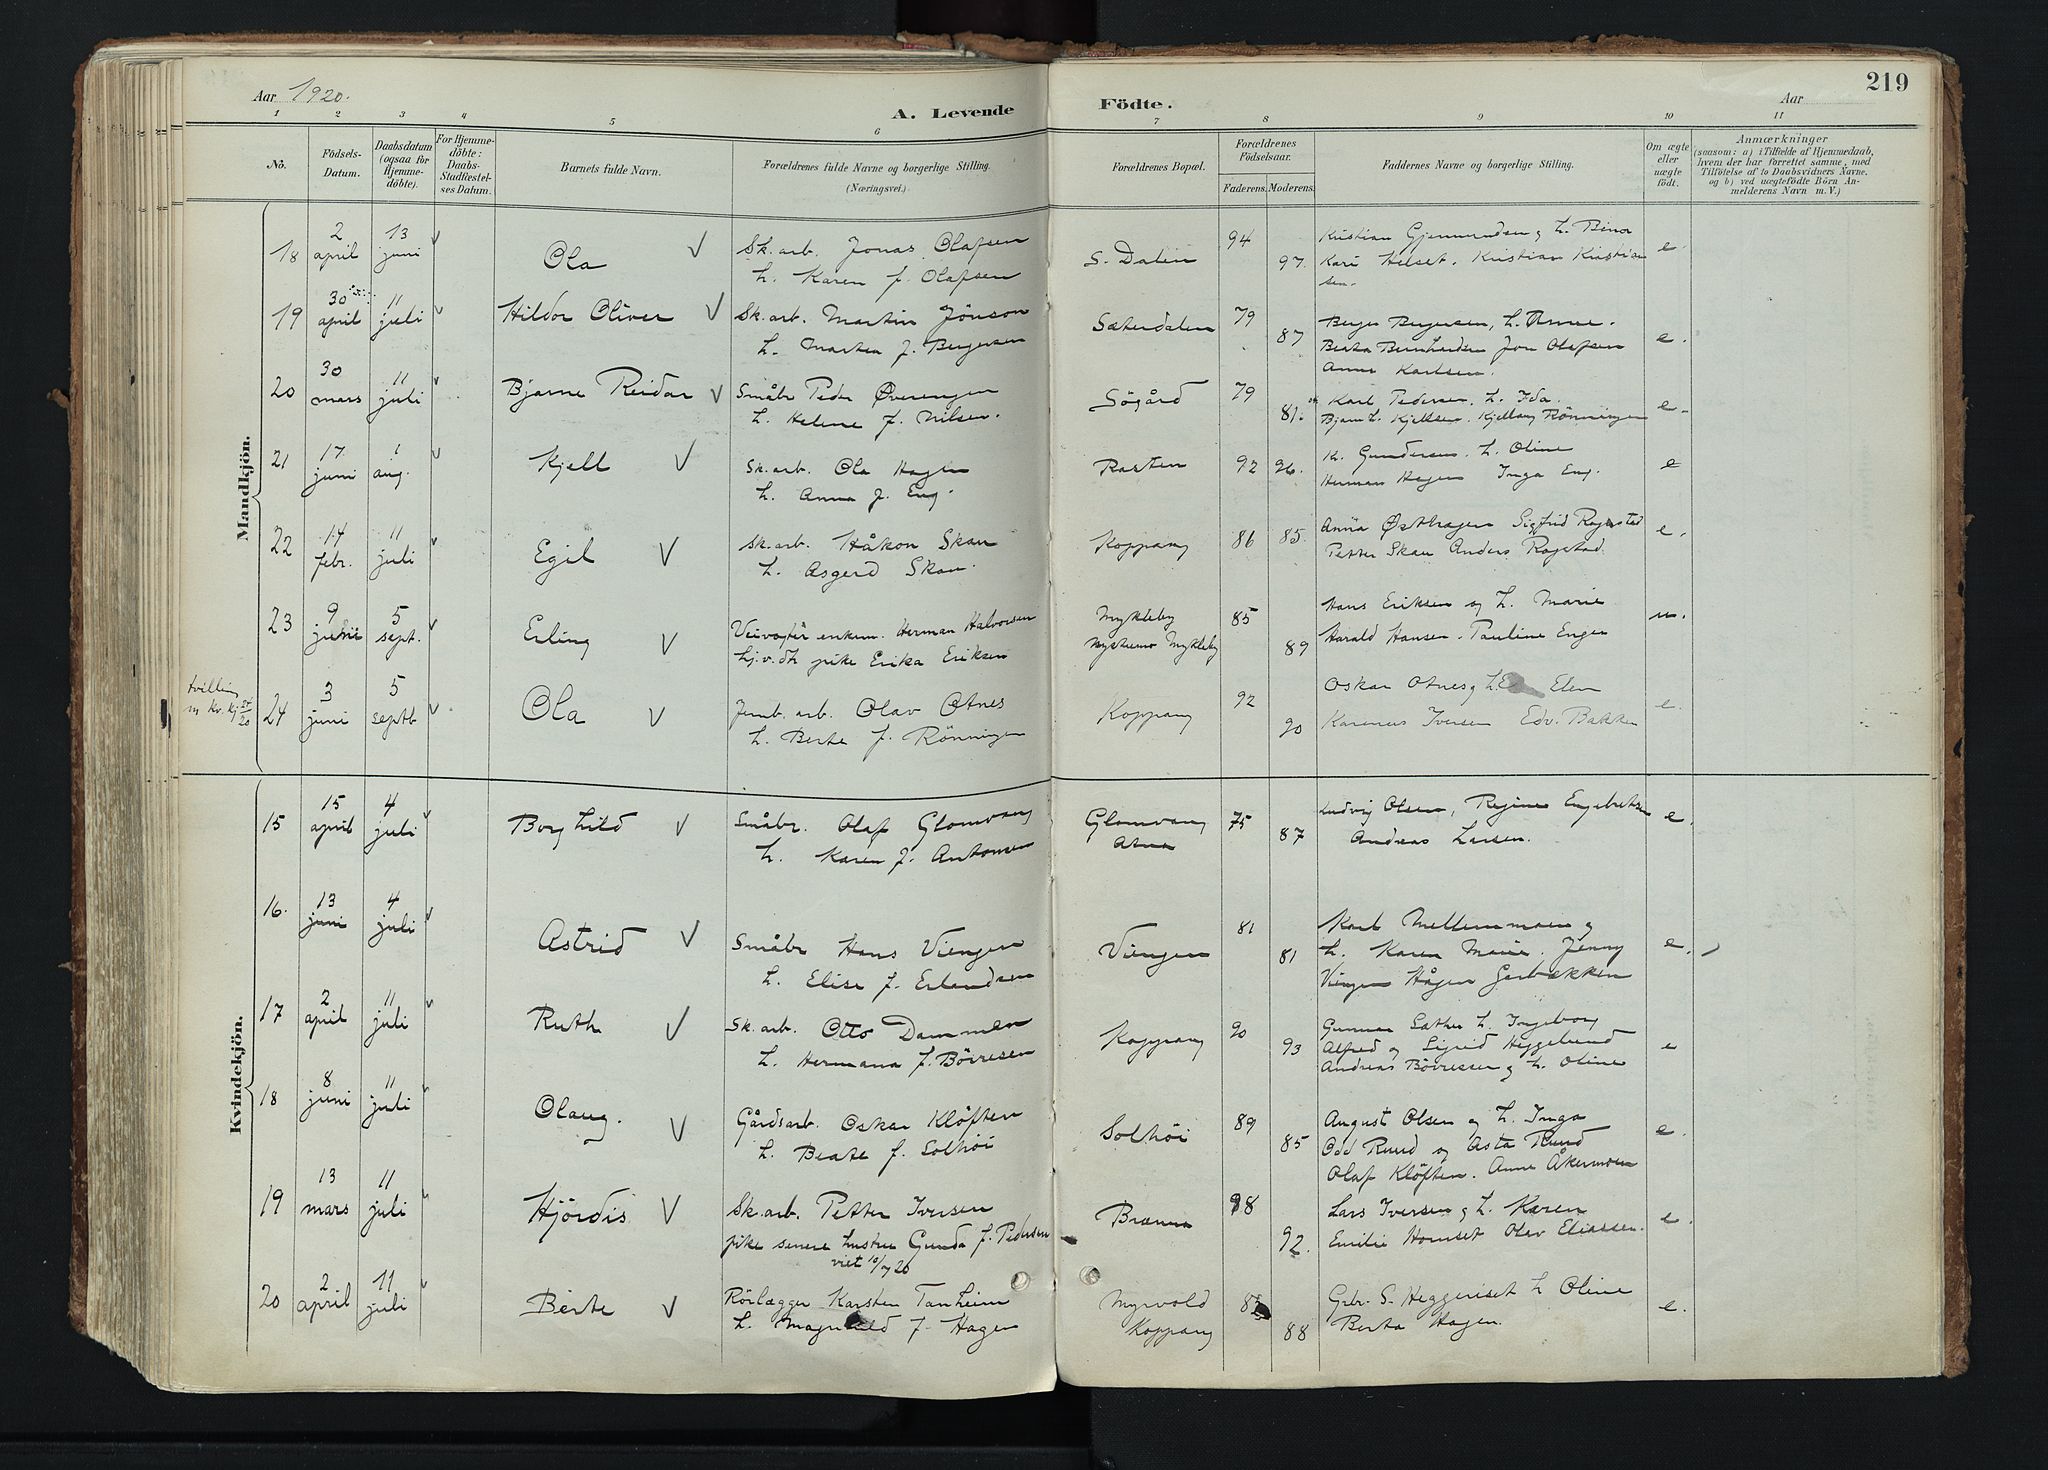 Aar 1920.
A. Levende
Födte.
Aar
219
1 2 3 4 5 6 7 8 9 10 11
No.
Födsels-
Datum.
Daabsdatum
(ogsaa for
Hjemme-
döbte).
For Hjemme-
döbte:
Daabs-
Stadfæstel-
ses Datum.
Barnets fulde Navn.
Forældrenes fulde Navne og borgerlige Stilling.
(Næringsvei.)
Forældrenes Bopæl.
Forældrenes
Födselsaar.
Faderens. Moderens.
Faddernes Navne og borgerlige Stilling.
Om ægte
eller
uægte
födt.
Anmærkninger
(saasom: a) i Tilfælde af Hjemmedaab,
hvem der har forrettet samme, med
Tilföielse af to Daabsvidners Navne.
og b) ved uægtefödte Börn An-
melderens Navn m. V.)
Mandkjön.
18 2 april 13 juni Ola
Sk. arb. Jonas Olafsen
h. Karen f. Olafsen
S. Dalen 94 97.
Kristian Gjermundsen og h. Bina
Kari Helset. Kristian Kristian
sen.
e.
19 30 april 11 juli Hildor Oliver
Sk. arb. Martin Jönson
h. Martea f. Bergersen
Sæterdalen 79 87
Berger Bergersen, h. Anne.
Berta Bernhardsen Jon Olafsen
Anna Karlsen.
e.
20 30 mars 11 juli Bjarne Reidar
Småbr Peder Øverengen
h. Helene f. Nilsen.
Sögård 79 81.
Karl Pedersen, h. Ida.
Bjarne h. Kjellsen. Kjellaug Rönningen
e.
21 17 juni 1 aug. Kjell
Sk. arb. Ola Hagen
h. Anna f. Eng.
Rasten 92 96.
K. Gundersen. h. Oline
Herman Hagen Inga Eng.
e
22 14 febr. 11 juli Egil
Sk. arb. Håkon Skau
h. Asgerd Skau.
Koppang 86 85.
Anna Østhagen Sigfrid Rogstad
Petter Skau Anders Rogstad.
e.
23 9 juni 5 sept. Erling
Veivogter enkem. Herman Halvorsen
hj.v.dtr. pike Erika Eriksen
Mykleby
Mykleby 85 89
Hans Eriksen og h. Marie
Harald Hansen. Pauline Enger
u.
tvilling
m Kv. kj 21/20
24 3 juni 5 septb Ola
Jernb. arb. Olav Otnes
h. Berte f. Rönningen
Koppang 92 90
Oskar Otnes og h. Elen
Karenus Iversen Edv. Bakken
e.
Kvindekjön.
15 15 april 4 juli Borghild
Småbr. Olaf Glomvang
h. Karen f. Antonsen
Glomvang
Atna 75 87
Ludvig Olsen, Regine Engebretsen
Andreas Larsen.
e.
16. 13 juni 4 juli Astrid
Småbr Hans Viengen
h. Elise f. Erlandsen
Viengen 81 81
Karl Mellemmoen og
h. Karen Marie. Jenny
Viengen Hågen Garbækken
e.
17 2 april 11 juli Ruth
Sk. arb. Otto Dammen
h. Hermana f. Börresen
Koppang 90 93
Gunnar Sæther h. Ingeborg
Alfred og Sigrid Heggelund
Andreas Börressen og h. Oline
e
18 8 juni 11 juli Olaug.
Gårdsarb. Oskar Klöften
h. Beate f. Solhöi
Solhöi 89 85
August Olsen og h. Inga
Odd Ruud og Asta Ruud
Olaf Klöften. Anne Åkermoen
e.
19 13 mars 11 juli Hjördis
Sk. arb. Petter Iversen
pike senere hustru Gunda f. Pedersen
viet 10/7 20
Brænna 98 92.
Lars Iversen og h. Karen
Emilie Homset Olav Eliassen.
e.
20 2 april 11 juli Berte
Rörlægger Karsten Tanheim
h. Magnhild f. Hagen
Myrvold
Koppang 85 88
Grbr. S. Heggeriset h Oline
Berta Hagen.
e.